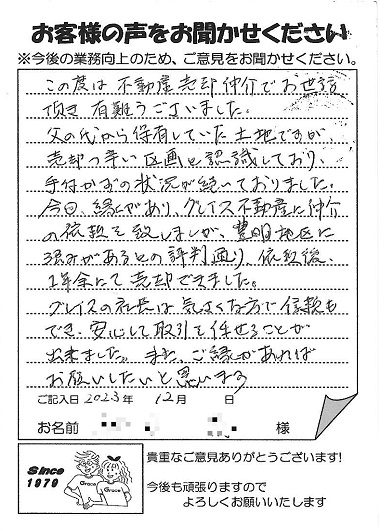 お客様の声をお聞かせください
※今後の業務向上のため、ご意見をお聞かせください。
この度は不動産売却仲介でお世話
頂き有難うございました。
父の代から保有していた土地ですが、
売却つ辛い区画と認識しており、
手付かずの状況が続いておりました。
今回、縁があり、グレイス不動産に仲介
の依頼を致しましが、豊明地区に
強みがあるとの評判通り、依頼後、
1年余にて売却できました。
グレイスの社長は気さくな方で信頼も
でき、安心して取引を任せることが
出来ました。また、ご縁があれば
お願いしたいと思います
ご記入日 2023年 12月 日
お名前 様
Since
1979
Grace
Grace
貴重なご意見ありがとうございます!
今後も頑張りますので
よろしくお願いいたします